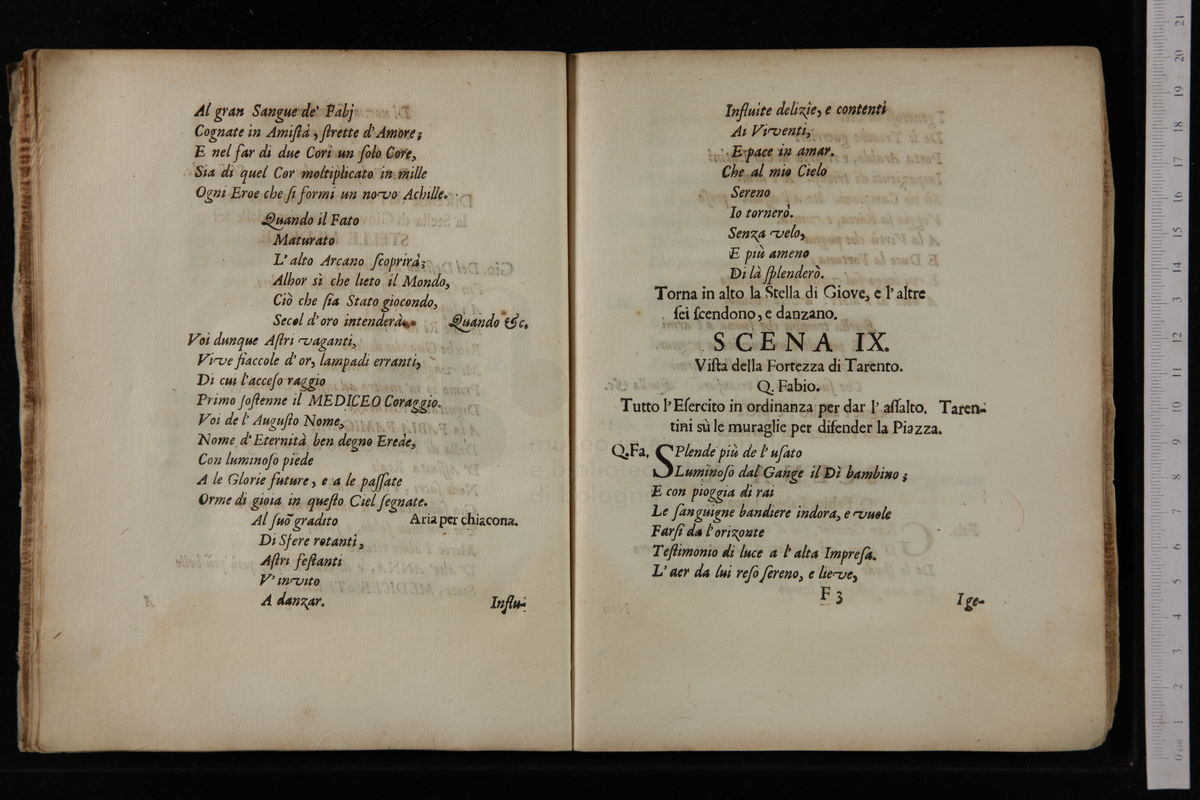 Al gran Sangue de' Fabj
Cognate in Amiſtà, ſtrette d'Amore;
E nel far di due Cori un ſolo Core,
Sia di quel Cor moltiplicato in mille
Ogni Eroe che ſi formi un novo Achille.
Quando il Fato
Maturato
L'alto Arcano ſcoprirà;
Alhor sì che lieto il Mondo,
Ciò che ſia Stato giocondo,
Secol d'oro intenderà. Quando &c.
Voi dunque Aſtri vaganti,
Vive fiaccole d'or, lampadi erranti,
Di cui l'acceſo raggio
Primo ſoſtenne il MEDICEO Coraggio.
Voi de l'Auguſto Nome,
Nome d'Eternità ben degno Erede,
Con luminoſo piede
A le Glorie future, e a le paſſate
Orme di gioia in queſto Ciel ſegnate.
Al ſuõ gradito Aria per chiacona.
Di Sfere rotanti,
Aſtri feſtanti
V'invito
A danzar. Influ-
Influite delizie, e contenti
Ai Viventi,
E pace in amar.
Che al mio Cielo
Sereno
Io tornerò.
Senza velo,
E più ameno
Di là ſplenderò.
Torna in alto la Stella di Giove, e l'altre
ſei ſcendono, e danzano.
SCENA IX.
Viſta della Fortezza di Tarento.
Q. Fabio.
Tutto l'Eſercito in ordinanza per dar l'aſſalto. Taren-
tini sù le muraglie per difender la Piazza.
Q.Fa. SPlende più de l'uſato
Luminoſo dal Gange il Dì bambino;
E con pioggia di rai
Le ſanguigne bandiere indora, e vuole
Farſi da l'orizonte
Teſtimonio di luce a l'alta Impreſa.
L'aer da lui reſo ſereno, e lieve,
F 3 I ge-